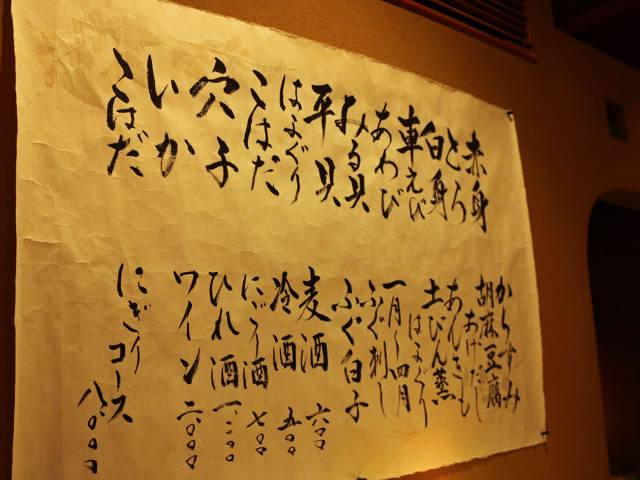 赤身
とろ
白身
車えび
あわび
みる貝
平貝
はまぐり
こはだ
穴子
いか
こはだ
からすみ
胡麻豆腐
あげだし
あんきも
土びん蒸
はまぐり
一月〜四月
ふぐ刺し
ふぐ白子
麦酒 六〇〇
冷酒 五〇〇
にごり酒 七〇〇
ひれ酒 一、二〇〇
ワイン 二、〇〇〇
にぎりコース 八、〇〇〇